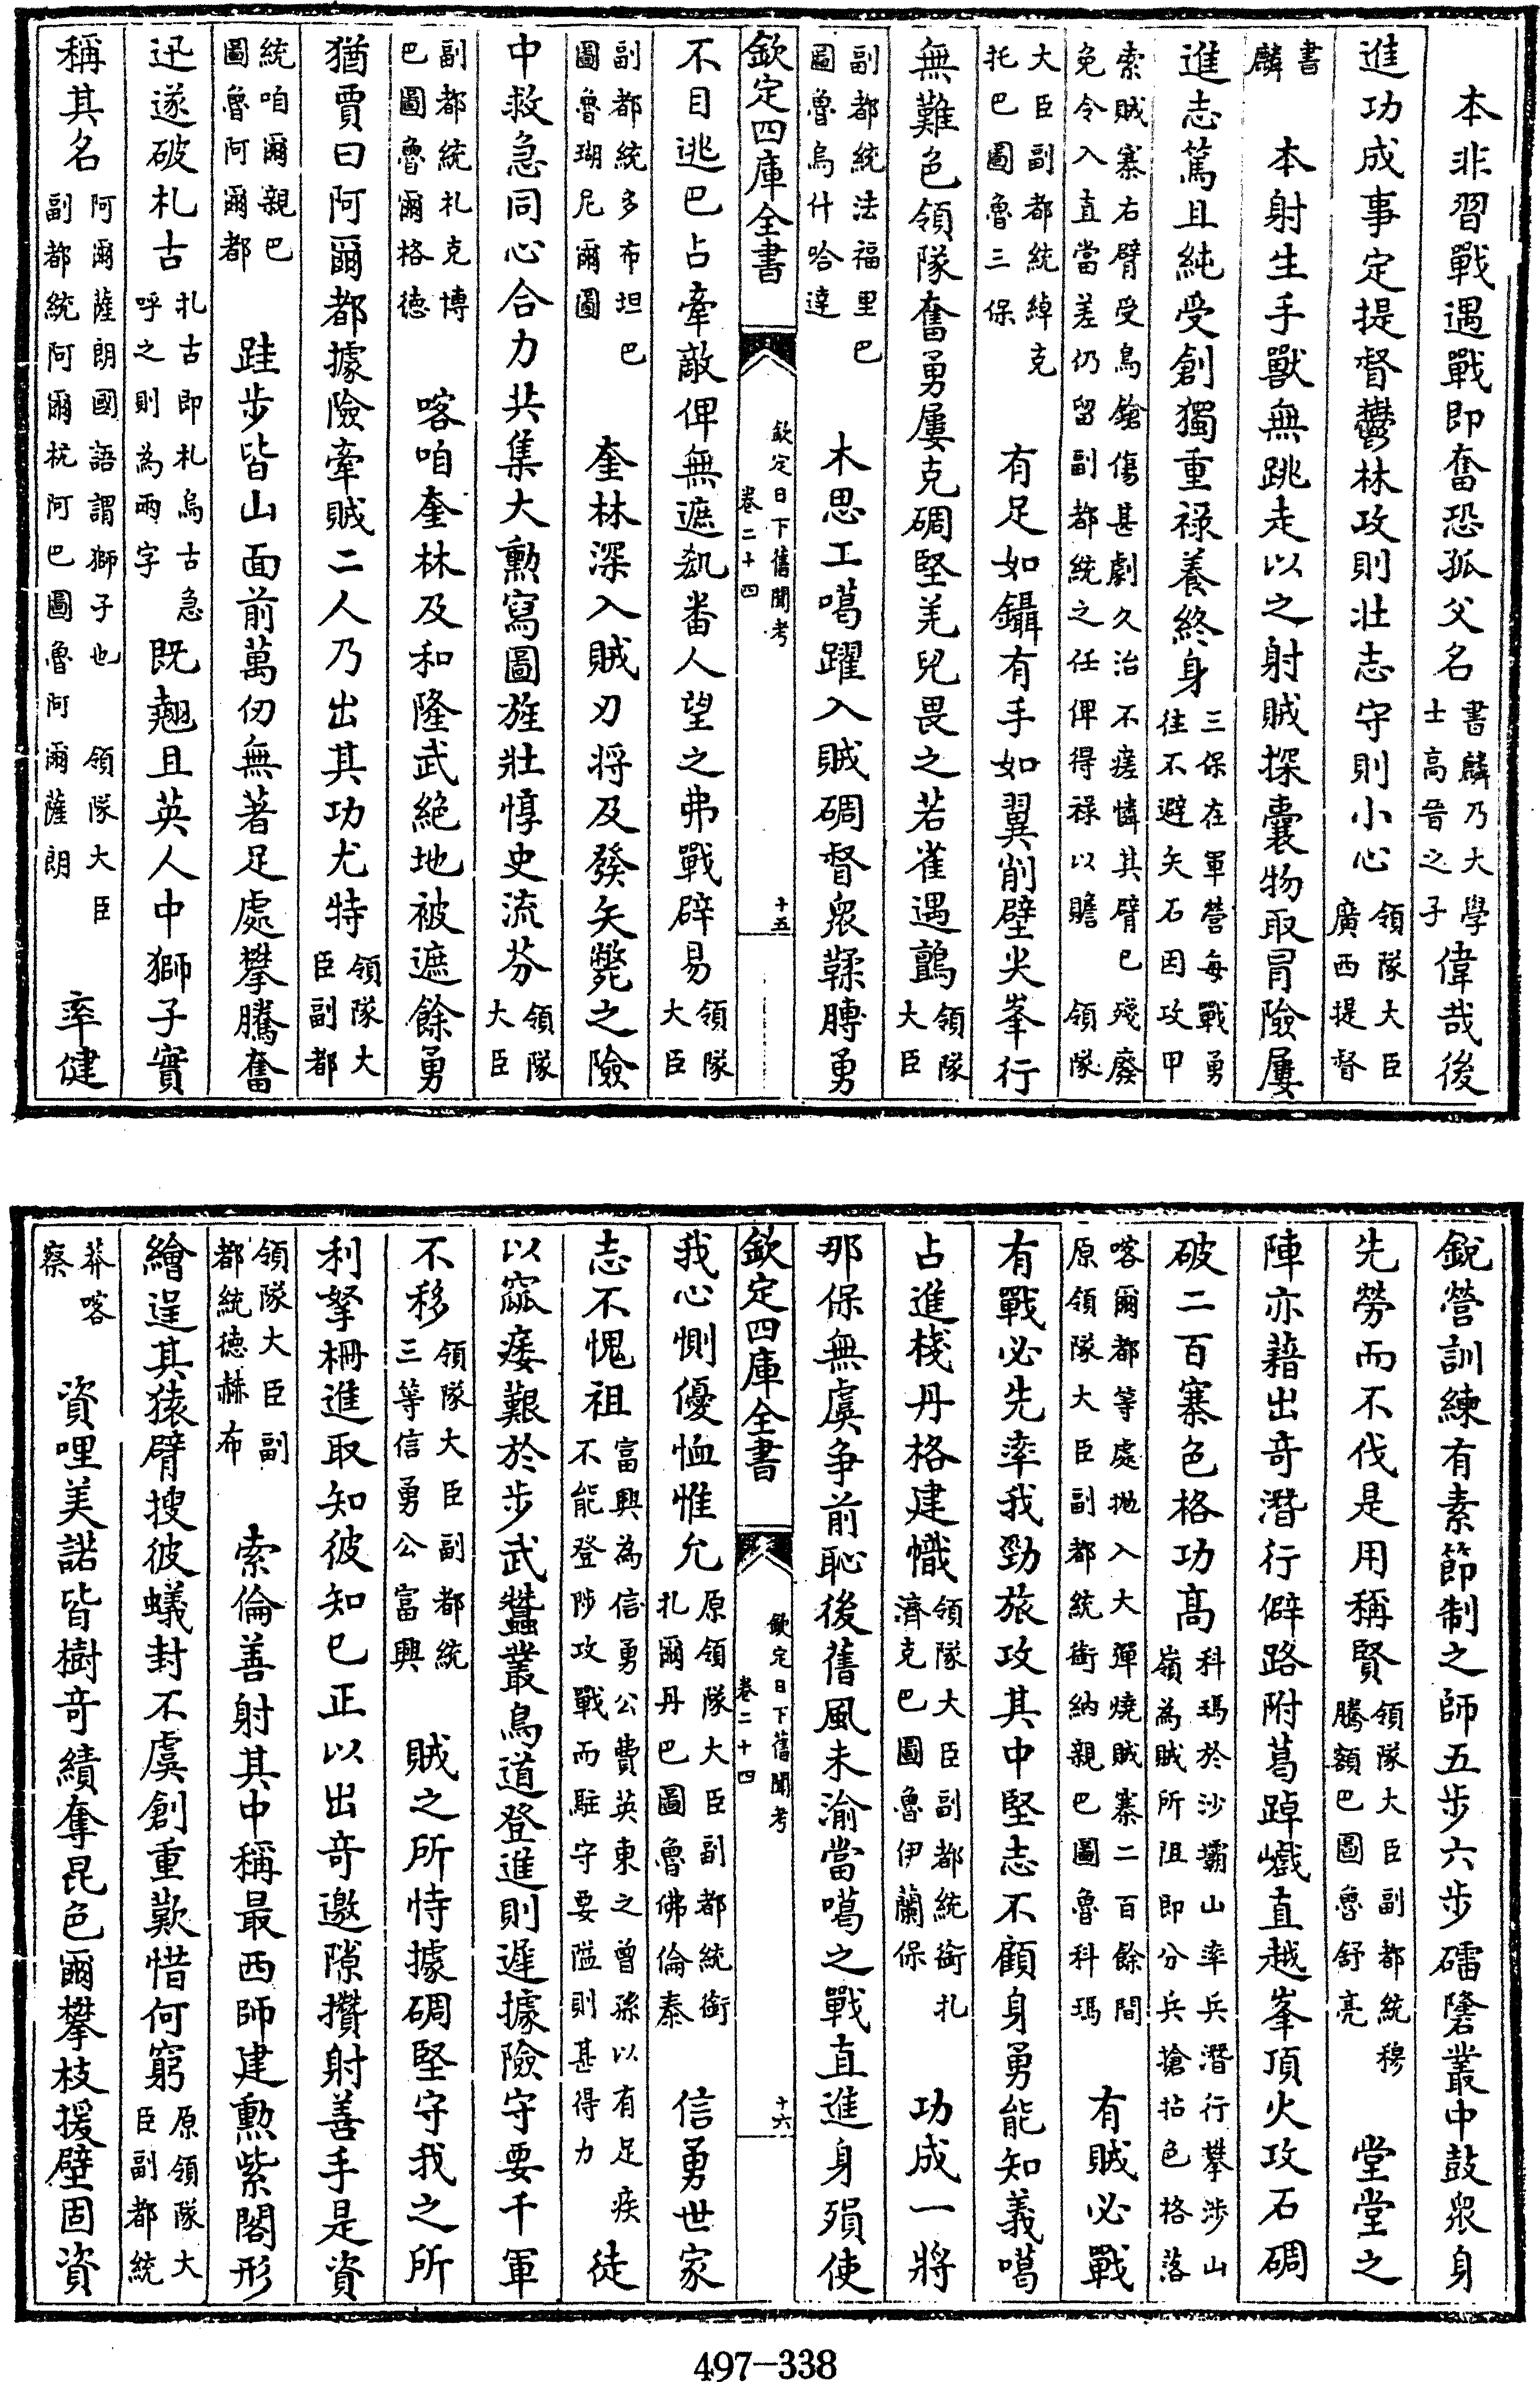 本非習戰遇戰即奮恐孤父名書麟乃大學士高晉之子偉哉後
進功成事定提督鬱林攻則壯志守則小心領隊大臣廣西提督
書麟　本射生手獸無跳走以之射賊探囊物取冐險屢
進志篤且純受創獨重禄養終身三保在軍營每戰勇往不避矢石因攻甲
索賊寨右臂受鳥鎗傷甚劇久治不痊憐其臂已殘廢免令入直當差仍留副都統之任俾得禄以贍　領隊
大臣副都統綽克托巴圖魯三保　有足如鑷有手如翼削壁尖峯行
無難色領隊奮勇屢克碉堅羌兒畏之若雀遇鸇領隊大臣
副都統法福里巴圖魯烏什哈達　木思工噶躍入賊碉督衆鞣膊勇
欽定四庫全書
欽定日下舊聞考
卷二十四
十五
不目逃巴占牽敵俾無遮㓤番人望之弗戰辟易領隊大臣
副都統多布坦巴圖魯瑚尼爾圖　奎林深入賊刃將及發矢斃之險
中救急同心合力共集大勲寫圖旌壯惇史流芬領隊大臣
副都統札克博巴圖魯爾格德　喀咱奎林及和隆武絶地被遮餘勇
猶賈曰阿爾都據險牽賊二人乃出其功尤特領隊大臣副都
統咱爾親巴圖魯阿爾都　跬步皆山面前萬仞無著足處攀騰奮
迅遂破札古扎古即札烏古急呼之則為兩字既翹且英人中獅子實
稱其名阿爾薩朗國語謂獅子也　領隊大臣副都統阿爾杭阿巴圖魯阿爾薩朗　率健
銳營訓練有素節制之師五步六步礌礐叢中鼓衆身
先勞而不伐是用稱賢領隊大臣副都統穆騰額巴圖魯舒亮　堂堂之
陣亦藉出奇潛行僻路附葛踔巇直越峯頂火攻石碉
破二百寨色格功髙科瑪於沙壩山率兵潛行攀涉山嶺為賊所阻即分兵搶拈色格落
喀爾都等處抛入大彈燒賊寨二百餘間原領隊大臣副都統銜納親巴圖魯科瑪　有賊必戰
有戰必先率我勁旅攻其中堅志不顧身勇能知義噶
占進棧丹格建幟領隊大臣副都統銜扎濟克巴圖魯伊蘭保　功成一將
那保無虞爭前恥後舊風未渝當噶之戰直進身殞使
欽定四庫全書
欽定日下舊聞考
卷二十四
十六
我心惻優恤惟允原領隊大臣副都統銜扎爾丹巴圖魯佛倫泰　信勇世家
志不愧祖富興為信勇公費英東之曾孫以有足疾不能登陟攻戰而駐守要隘則甚得力徒
以㾿痿艱於步武蠶叢鳥道登進則遲據險守要千軍
不移領隊大臣副都統三等信勇公富興　賊之所恃據碉堅守我之所
利拏柵進取知彼知己正以出奇邀隙攢射善手是資
領隊大臣副都統德赫布　索倫善射其中稱最西師建勲紫閣形
繪逞其猿臂搜彼蟻封不虞創重歎惜何窮原領隊大臣副都統
莽喀察　資哩美諾皆樹奇績奪昆色爾攀枝援壁固資
497—338